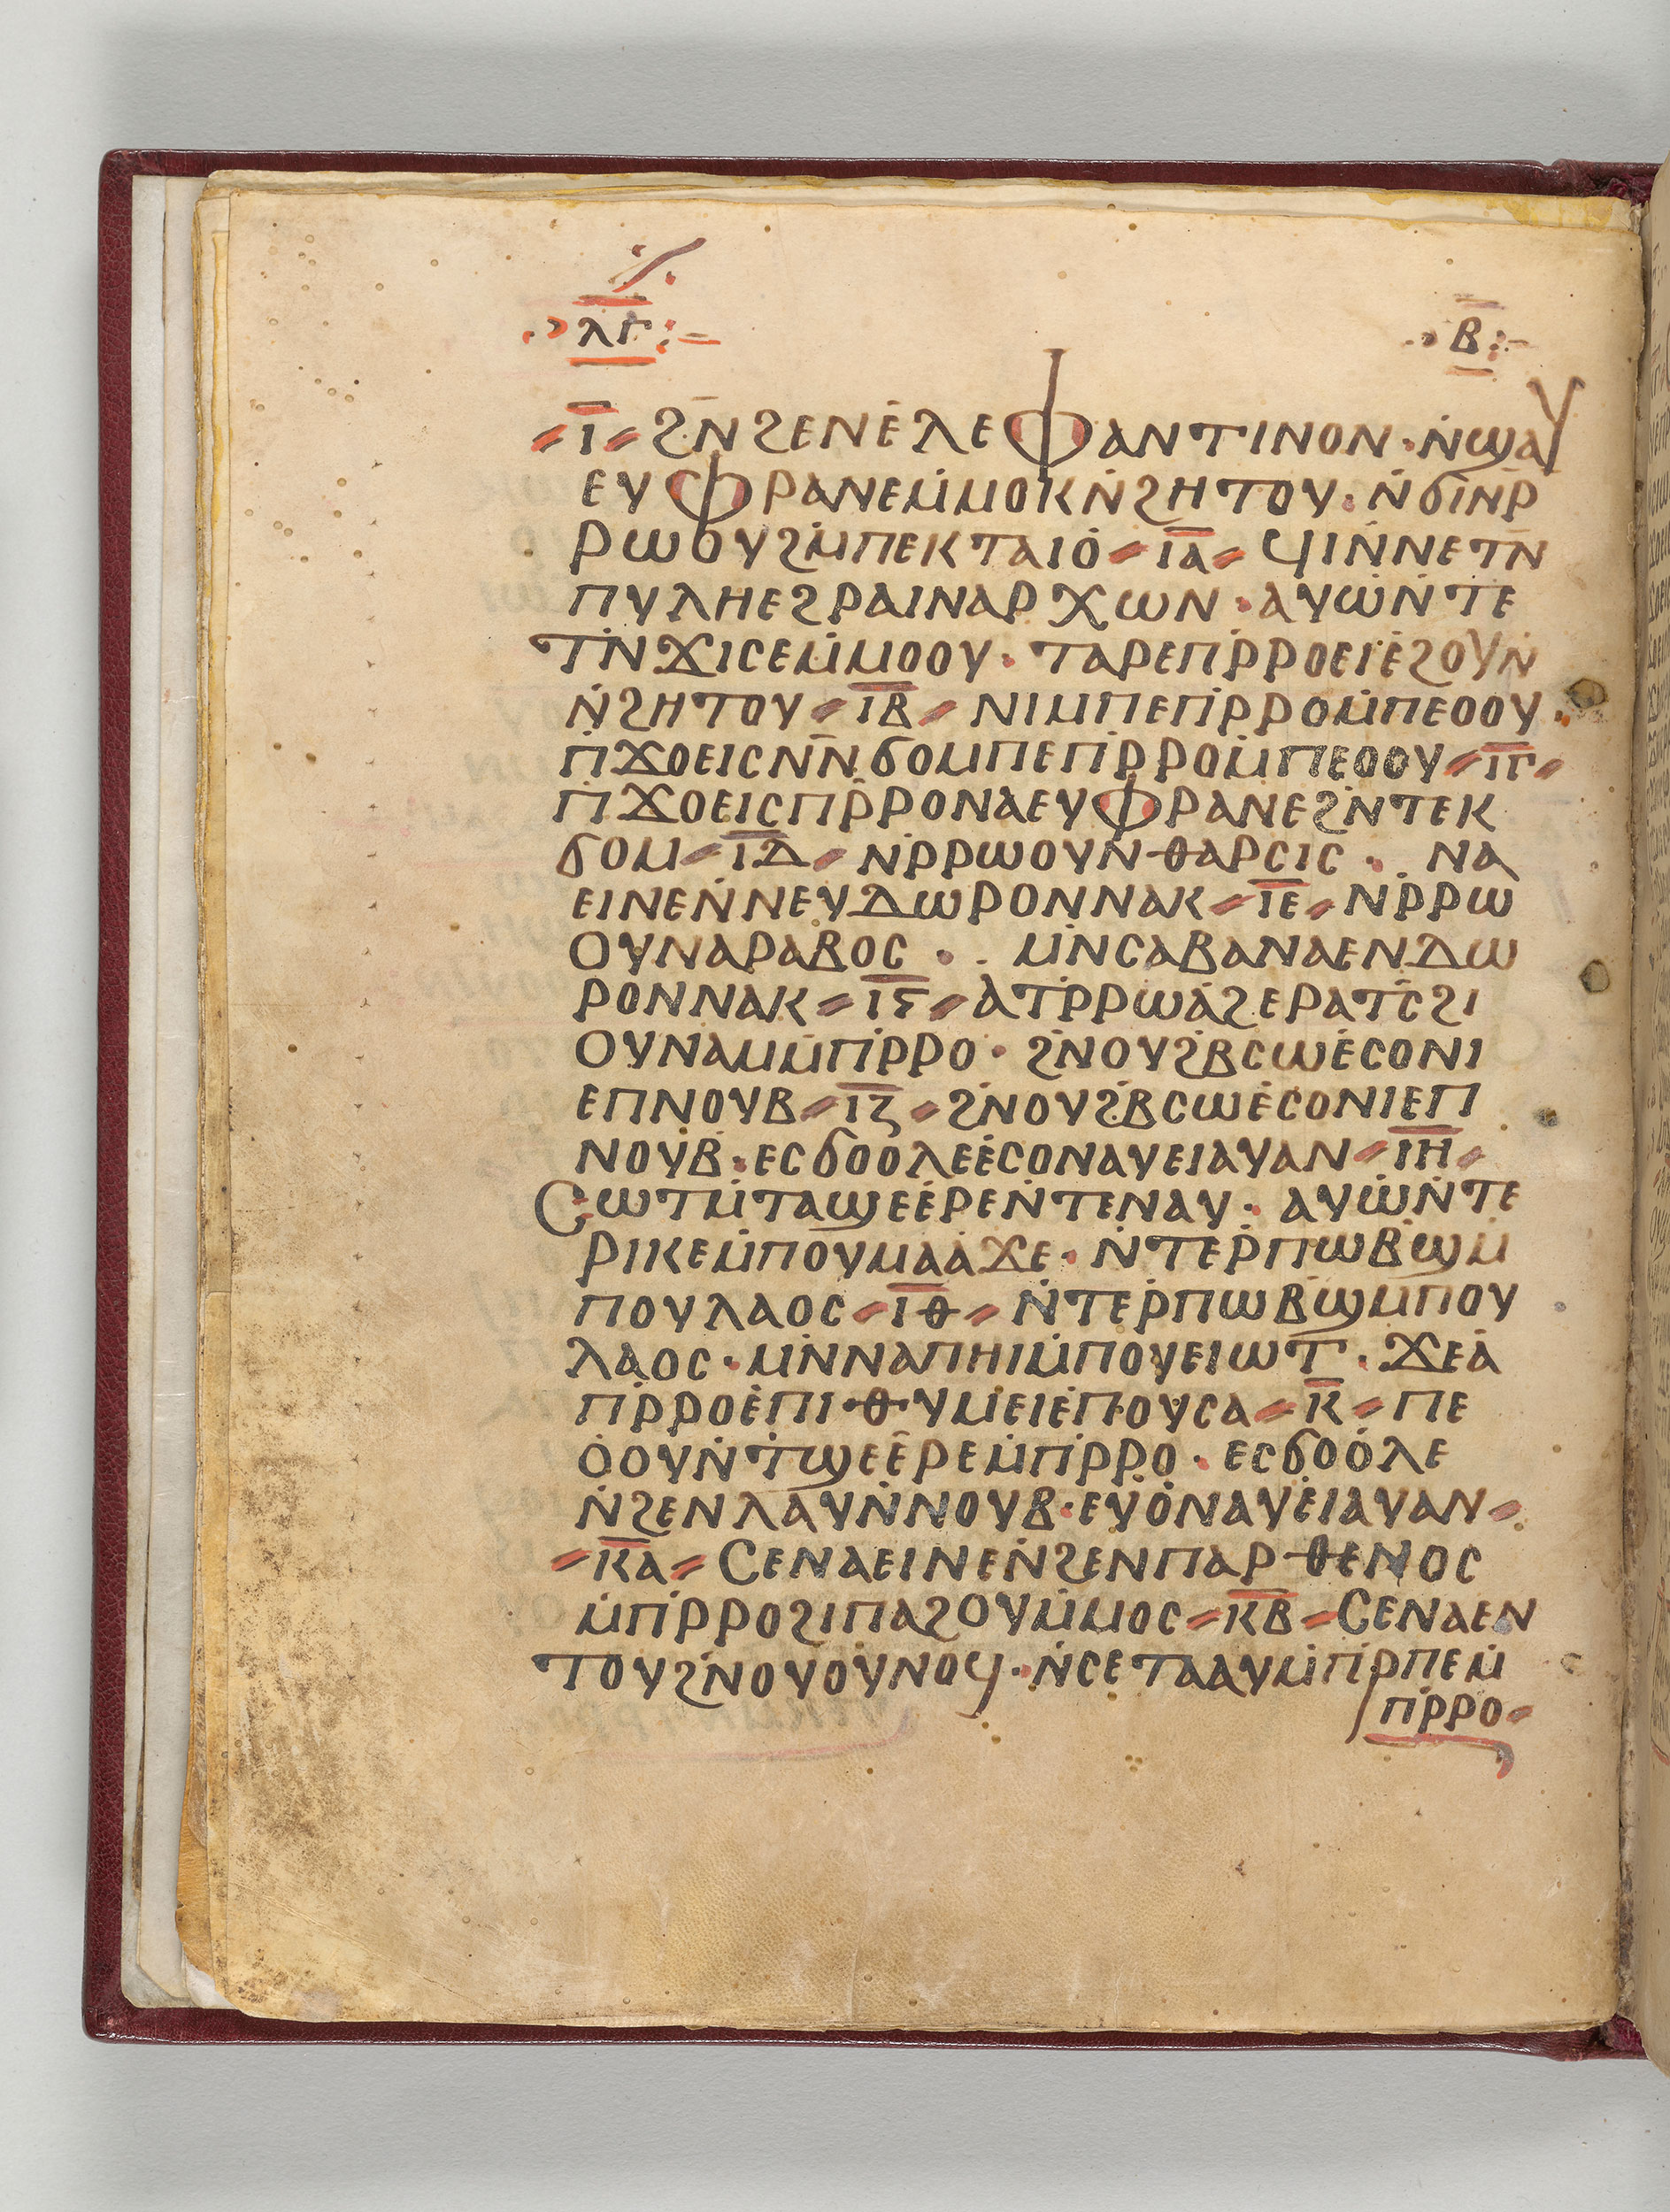 ⲗⲅ ⲃ
ⲓ̅ ϩⲛ̇ϩⲉⲛⲉ̇ⲗⲉⲫⲁⲛⲧⲓⲛⲟⲛ· ⲛ̇ϣⲁⲩ
ⲉⲩⲫⲣⲁⲛⲉⲙ̇ⲙⲟⲕⲛ̇ϩⲏⲧⲟⲩ· ⲛ̇ϭⲓⲛ̇ⲣ
ⲣⲱⲟⲩϩⲙ̇ⲡⲉⲕⲧⲁⲓⲟ̇ ⲓ̅ⲁ̅ ϥⲓⲛ̇ⲛⲉⲧⲛ̇
ⲡⲩⲗⲏⲉϩⲣⲁⲓⲛⲁⲣⲭⲱⲛ· ⲁⲩⲱⲛ̇ⲧⲉ
ⲧⲛ̇ϫⲓⲥⲉⲙ̇ⲙⲟⲟⲩ· ⲧⲁⲣⲉⲡⲣ̇ⲣⲟⲉⲓⲉ̇ϩⲟⲩⲛ̇
ⲛ̇ϩⲏⲧⲟⲩ ⲓ̅ⲃ̅ ⲛⲓⲙⲡⲉⲡⲣ̇ⲣⲟⲙ̇ⲡⲉⲟⲟⲩ·
ⲡ̇ϫⲟⲉⲓⲥⲛⲛ̇ϭⲟⲙⲡⲉⲡⲣ̇ⲣⲟⲙ̇ⲡⲉⲟⲟⲩ ⲓ̅ⲅ̅
ⲡ̇ϫⲟⲉⲓⲥⲡⲣ̇ⲣⲟⲛⲁⲉⲩⲫⲣⲁⲛⲉϩⲛ̇ⲧⲉⲕ
ϭⲟⲙ ⲓ̅ⲇ̅ ⲛ̇ⲣⲣⲱⲟⲩⲛⲑⲁⲣⲥⲓⲥ· ⲛⲁ
ⲉⲓⲛⲉⲛ̇ⲛⲉⲩⲇⲱⲣⲟⲛⲛⲁⲕ ⲓ̅ⲉ̅ ⲛⲣ̇ⲣⲱ
ⲟⲩⲛⲁⲣⲁⲃⲟⲥ· ⲙⲛ̇ⲥⲁⲃⲁⲛⲁⲉⲛⲇⲱ
ⲣⲟⲛⲛⲁⲕ ⲓ̅ⲋ̅ ⲁ̇ⲧⲣ̇ⲣⲱⲁ̇ϩⲉⲣⲁⲧⲥ̇ϩⲓ
ⲟⲩⲛⲁⲙⲙ̇ⲡⲣ̇ⲣⲟ· ϩⲛ̇ⲟⲩϩⲃ̇ⲥⲱⲉ̇ⲥⲟⲛⲓ
ⲉⲡⲛⲟⲩⲃ ⲓ̅ⲍ̅ ϩⲛ̇ⲟⲩϩⲃ̇ⲥⲱⲉ̇ⲥⲟⲛⲓⲉⲡ
ⲛⲟⲩⲃ· ⲉⲥϭⲟⲟⲗⲉⲉ̇ⲥⲟⲛⲁⲩⲉⲓⲁⲩⲁⲛ ⲓ̅ⲏ̅
ⲥⲱⲧⲙ̇ⲧⲁϣⲉⲉ̇ⲣⲉⲛ̇ⲧⲉⲛⲁⲩ· ⲁⲩⲱⲛ̇ⲧⲉ
ⲣⲓⲕⲉⲙ̇ⲡⲟⲩⲙⲁⲁ̇ϫⲉ· ⲛ̇ⲧⲉⲣ̇ⲡⲱⲃϣ̇ⲙ
ⲡⲟⲩⲗⲁⲟⲥ ⲓ̅ⲑ̅ ⲛ̇ⲧⲉⲣ̇ⲡⲱⲃϣ̇ⲙⲡⲟⲩ
ⲗⲁⲟⲥ· ⲙⲛ̇ⲛⲁⲡⲏⲓⲙ̇ⲡⲟⲩⲉⲓⲱⲧ· ϫⲉⲁ̇
ⲡⲣ̇ⲣⲟⲉ̇ⲡⲓⲑⲩⲙⲉⲓⲉ̇ⲡⲟⲩⲥⲁ ⲕ̅ ⲡⲉ
ⲟ̇ⲟⲩⲛ̇ⲧ̇ϣⲉⲉ̇ⲣⲉⲙ̇ⲡⲣ̇ⲣⲟ· ⲉⲥϭⲟⲟ̇ⲗⲉ
ⲛ̇ϩⲉⲛⲗⲁⲩⲛ̇ⲛⲟⲩⲃ· ⲉⲩⲟ̇ⲛⲁⲩⲉ̇ⲓⲁⲩⲁⲛ
ⲕ̅ⲁ̅ ⲥⲉⲛⲁⲉⲓⲛⲉⲛ̇ϩⲉⲛⲡⲁⲣⲑⲉⲛⲟⲥ
ⲙ̇ⲡⲣ̇ⲣⲟϩⲓⲡⲁϩⲟⲩⲙ̇ⲙⲟⲥ ⲕ̅ⲃ̅ ⲥⲉⲛⲁⲉⲛ
ⲧⲟⲩϩⲛ̇ⲟⲩⲟⲩⲛⲟϥ· ⲛ̇ⲥⲉⲧⲁⲁⲩⲙ̇ⲡⲣ̇ⲡⲉⲙ̇
ⲡⲣ̇ⲣⲟ